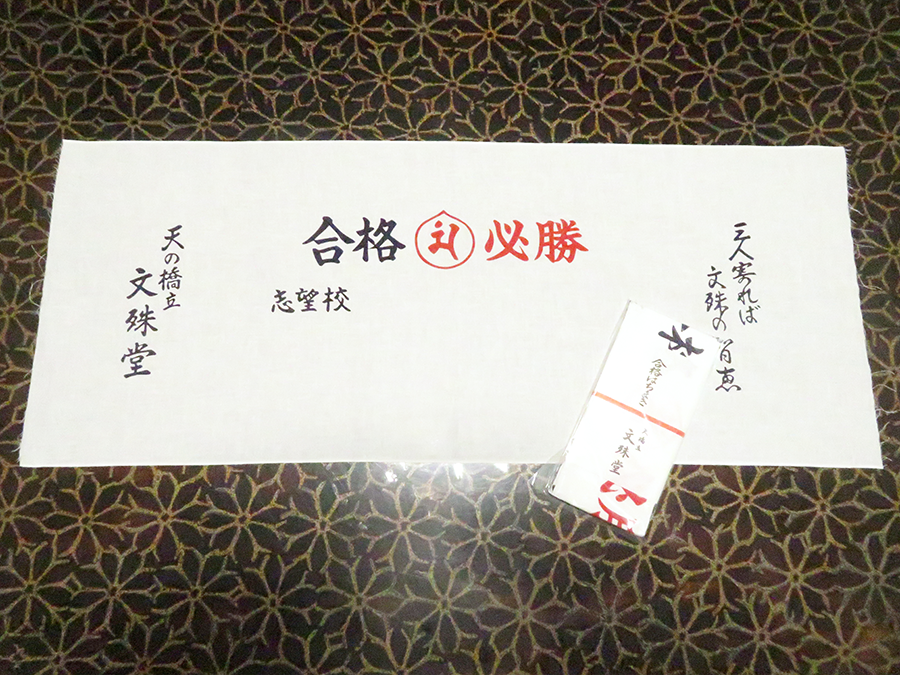 合格 必勝
志望校
三人寄れば
文殊の
恵
天の橋立
文殊堂
合格はちまき
天橋立
文殊堂